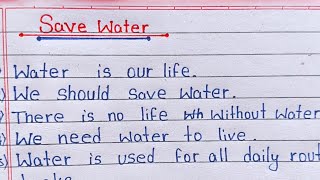 Save Water
Water is our life.
We should save water.
There is no life wh without water
We need water to live.
Water is used for all daily rout